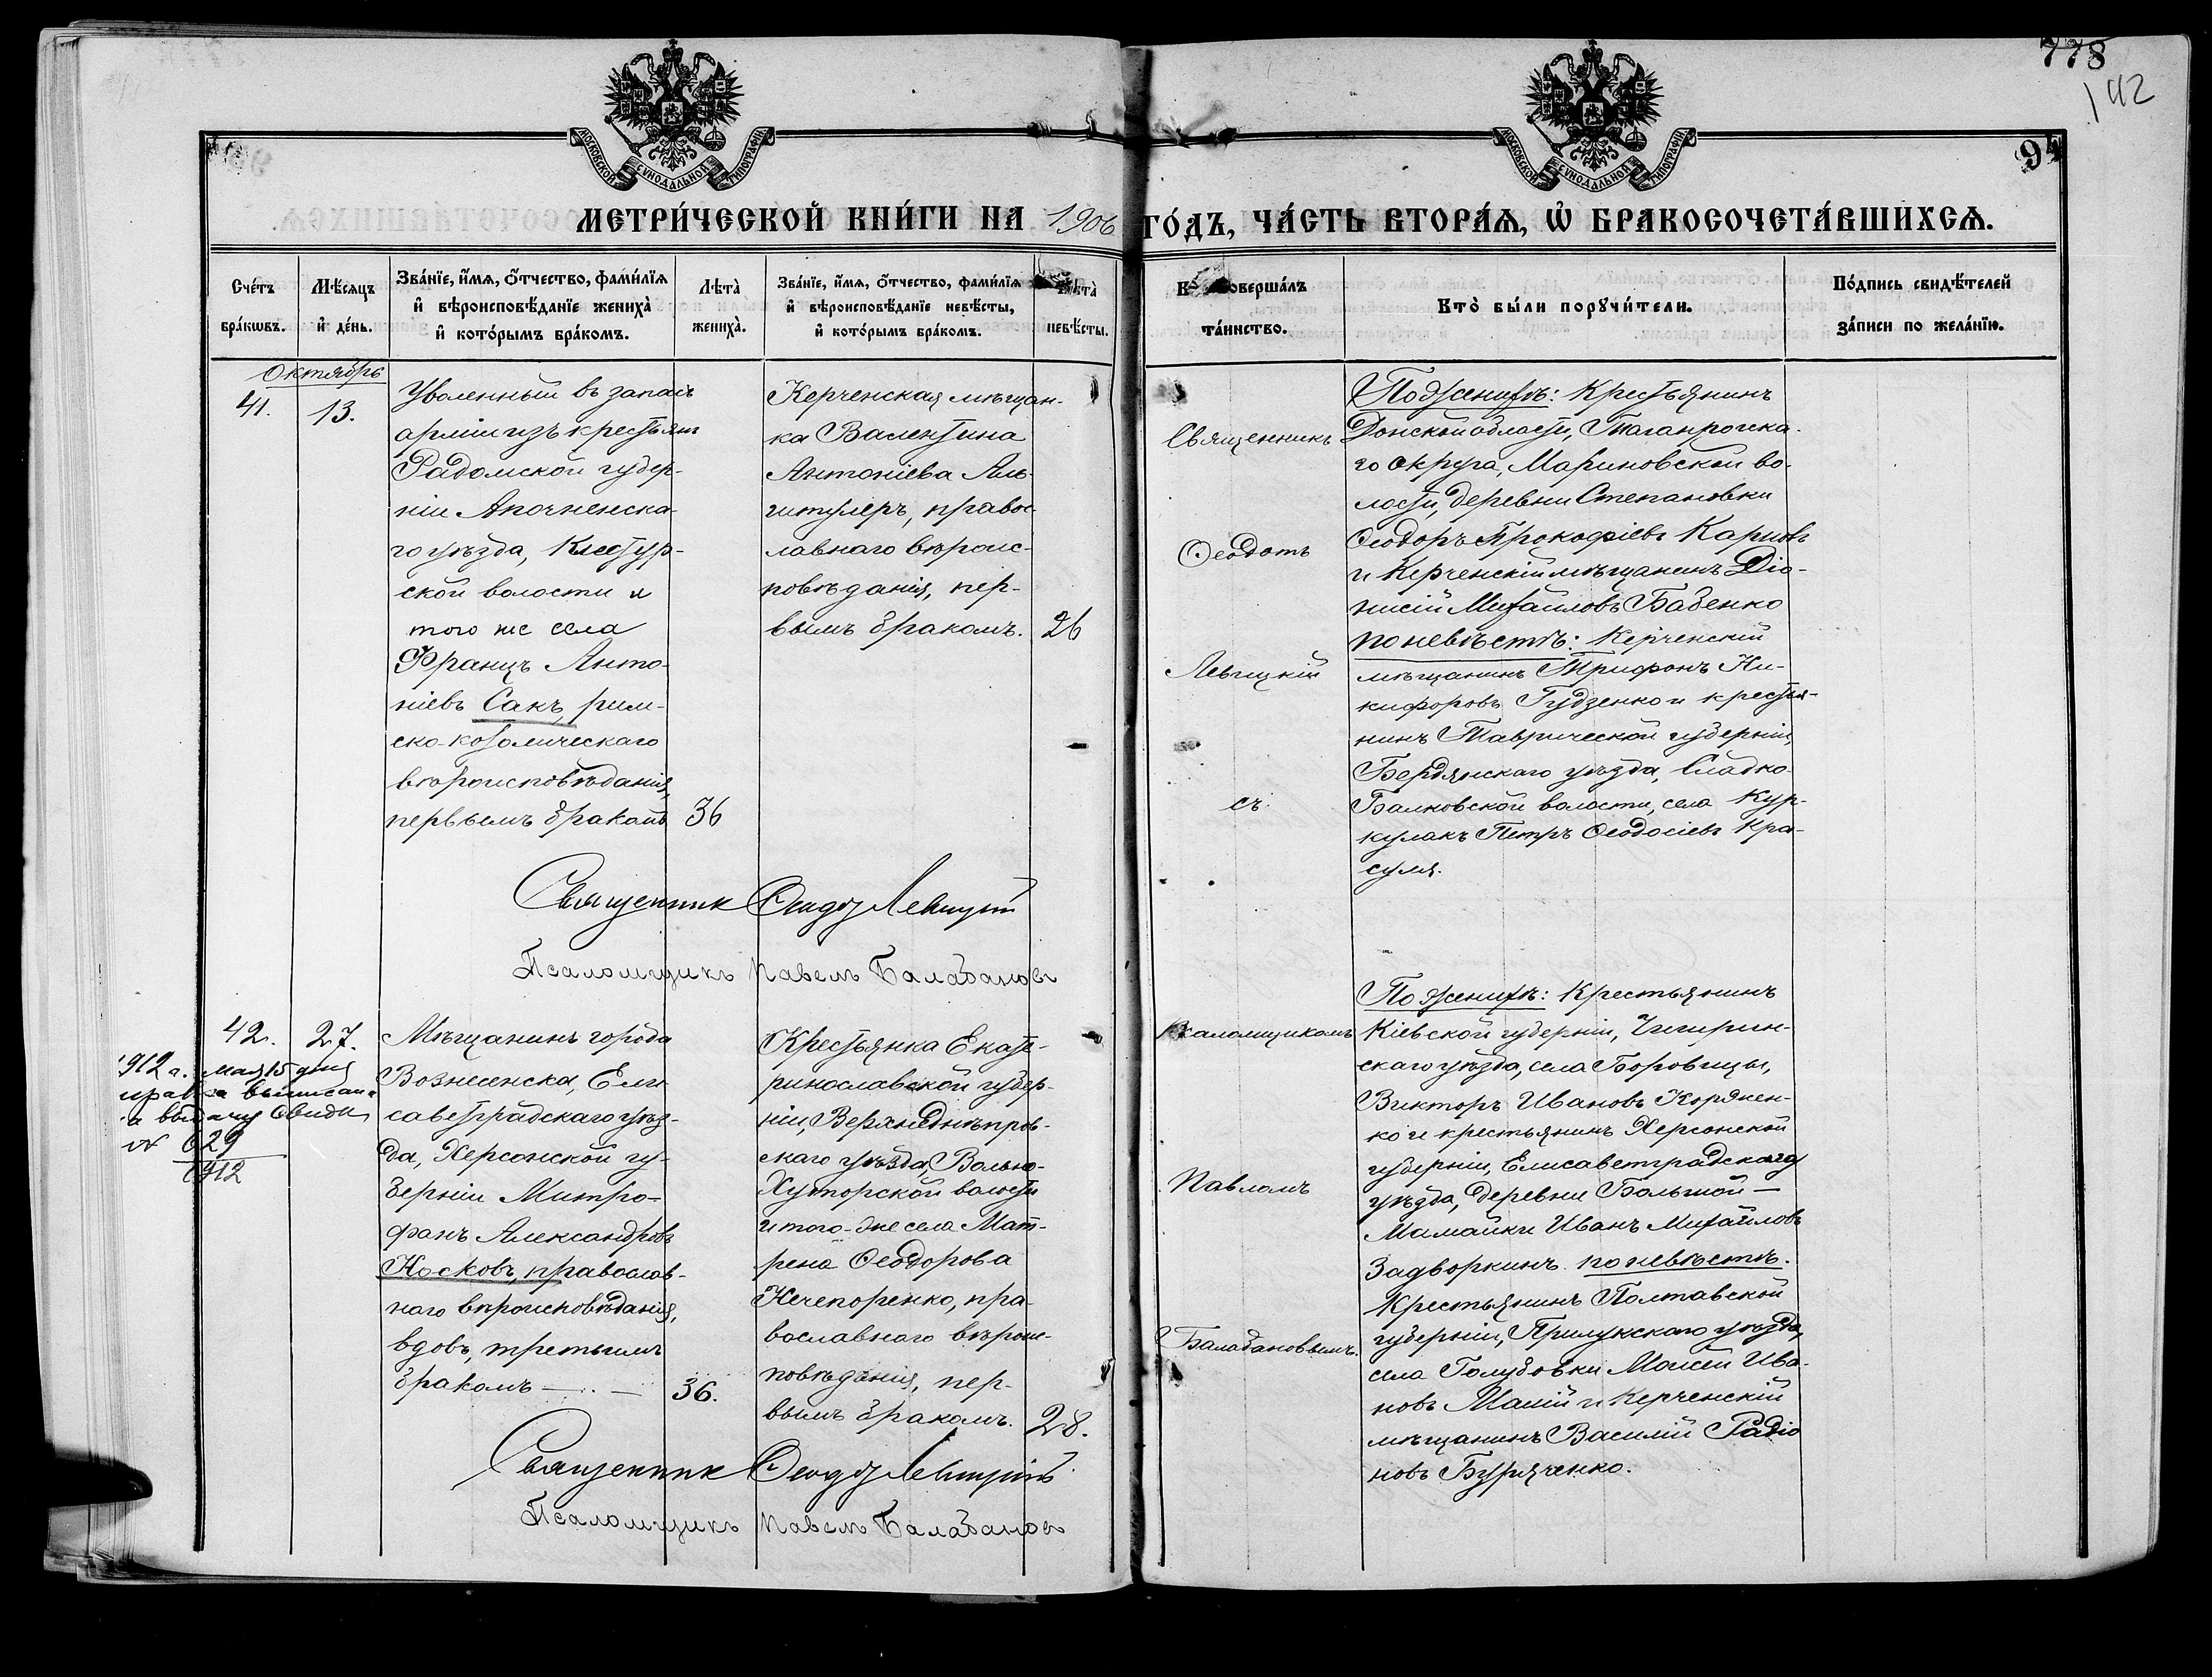 778
142
94
МОСКОВСКОЙ СУНОДАЛЬНОЙ ТИПОГРАФІИ
МОСКОВСКОЙ СУНОДАЛЬНОЙ ТИПОГРАФІИ
МЕТРИ́ЧЕСКОЙ КНИ́ГИ НА 1906 ГО́ДЪ, ЧА́СТЬ ВТОРА́Ѧ, Ѽ БРАКОСОЧЕТА́ВШИХСѦ.
Сче́тъ бра́кѡвъ.
Мѣ́сяцъ и҆ де́нь.
Зва́нїе, и҆́мѧ, ѻ҆́тчество, фами́лїѧ
и҆ вѣроисповѣ́данїе жениха̀
и҆ кото́рымъ бра́комъ.
Лѣта̀ жениха̀.
Зва́нїе, и҆́мѧ, ѻ҆́тчество, фами́лїѧ
и҆ вѣроисповѣ́данїе невѣ́сты,
и҆ кото́рымъ бра́комъ.
Лѣта̀ невѣ́сты.
соверша́лъ
та́инство.
Кто̀ бы́ли порꙋчи́тели.
По́дпись свидѣ́телей
за́писи по жела́нїю.
Октябрь
41.
13.
Уволенный въ запасъ
арміи изъ крестьянъ
Радомской губер-
ніи Апочненска-
го уѣзда,
ской волости и
того же села
Францъ Анто-
ніевъ Сакъ, рим-
ско-католическаго
вѣроисповѣданія,
первымъ бракомъ
36
Керченская мѣщан-
ка Валентина
Антоніева Аль-
гитулеръ, правос-
лавнаго вѣроис-
повѣданія, пер-
вымъ бракомъ.
26
Священникъ
Ѳеодотъ
Левицкій
съ
По женихѣ: Крестьянинъ
Донской области, Таганрогска-
го округа, Мариновской во-
лости, деревни Степановки
Ѳеодоръ Прокофіевъ Карповъ
и Керченскій мѣщанинъ Діо-
нисій Михайловъ Бабенко
по невѣстѣ: Керченскій
мѣщанинъ Трифонъ Ни-
кифоровъ Гудзенко и крестья-
нинъ Таврической губерніи,
Бердянскаго уѣзда, Сладко-
Балковской волости, села Кур-
кулакъ Петръ Ѳеодосіевъ Кра-
суля.
Священникъ Ѳеодотъ Левицкій
Псаломщикъ Павелъ Балабановъ
42.
27.
1912 г. мая 15 дня
выписана
выдачу Свид.
№ 629
1912
Мѣщанинъ города
Вознесенска, Ели-
саветградскаго уѣз-
да, Херсонской гу-
берніи Митро-
фанъ Александровъ
Носковъ, православ-
наго вѣроисповѣданія,
вдовъ, третьимъ
бракомъ
36.
Крестьянка Екате-
ринославской губер-
ніи, Верхнеднѣпров-
скаго уѣзда, Вольно-
Хуторской волости
и того-же села Мат-
рена Ѳеодорова
Нечепоренко, пра-
вославнаго вѣроис-
повѣданія, пер-
вымъ бракомъ.
28.
Псаломщикомъ
Павломъ
Балабановымъ.
По женихѣ: Крестьянинъ
Кіевской губерніи, Чигирин-
скаго уѣзда, села Боровицы,
Викторъ Ивановъ Корякен-
ко и крестьянинъ Херсонской
губерніи, Елисаветградскаго
уѣзда, деревни Большой —
Мамайки Иванъ Михайловъ
Задворкинъ. по невѣстѣ.
Крестьянинъ Полтавской
губерніи, Прилукскаго уѣзда,
села Голубовки Моисей Ива-
новъ Малій и Керченскій
мѣщанинъ Василій Радіо
новъ Буряченко.
Священникъ Ѳеодотъ Левицкій
Псаломщикъ Павелъ Балабановъ